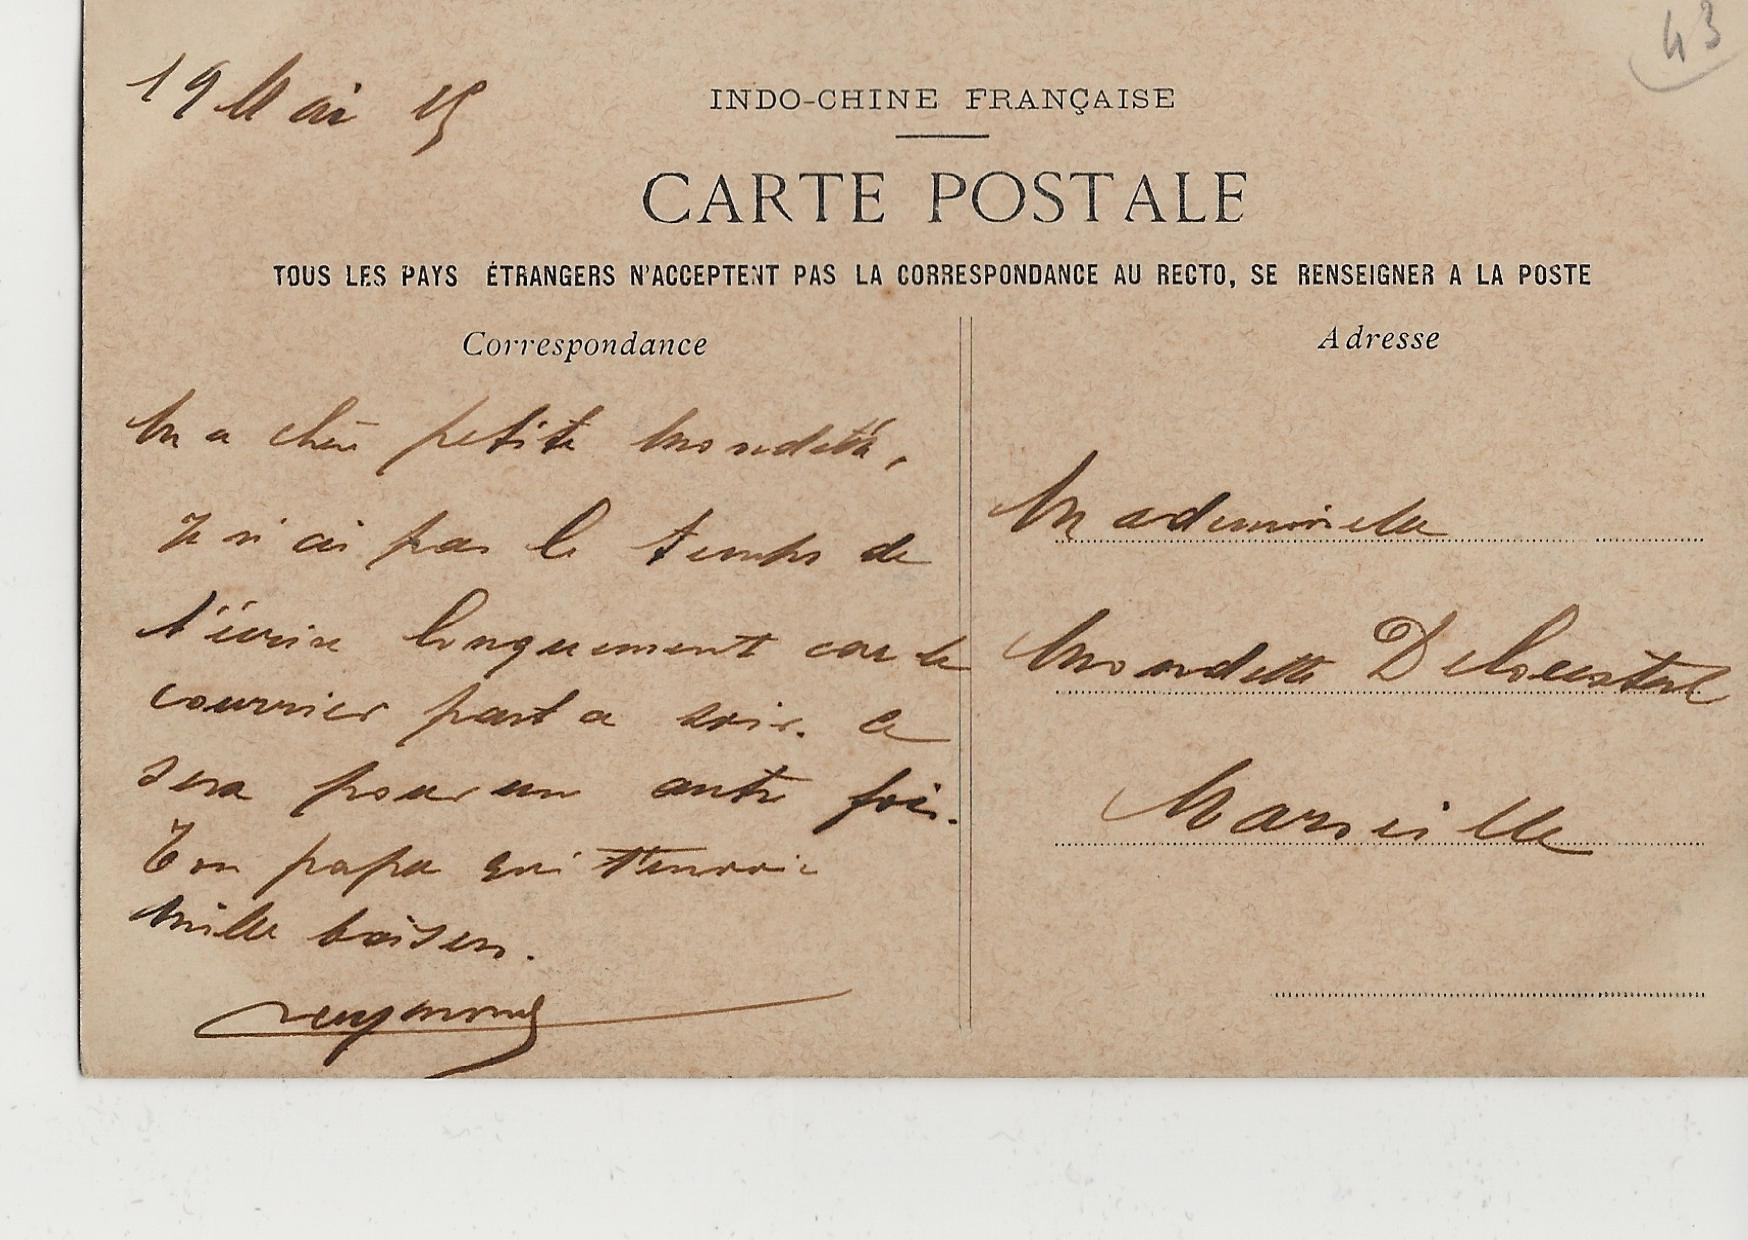 43
19 Mai 15
INDO-CHINE FRANÇAISE
CARTE POSTALE
TOUS LES PAYS ÉTRANGERS N'ACCEPTENT PAS LA CORRESPONDANCE AU RECTO, SE RENSEIGNER A LA POSTE
Correspondance
Ma chère petite Mondette,
Je n'ai pas le temps de
t'écrire longuement car le
courrier part ce soir. Ce
sera pour un autre fois.
Ton papa qui t'envoie
mille baisers.
Raymond
Adresse
Mademoiselle
Mondette Deloustal
Marseille